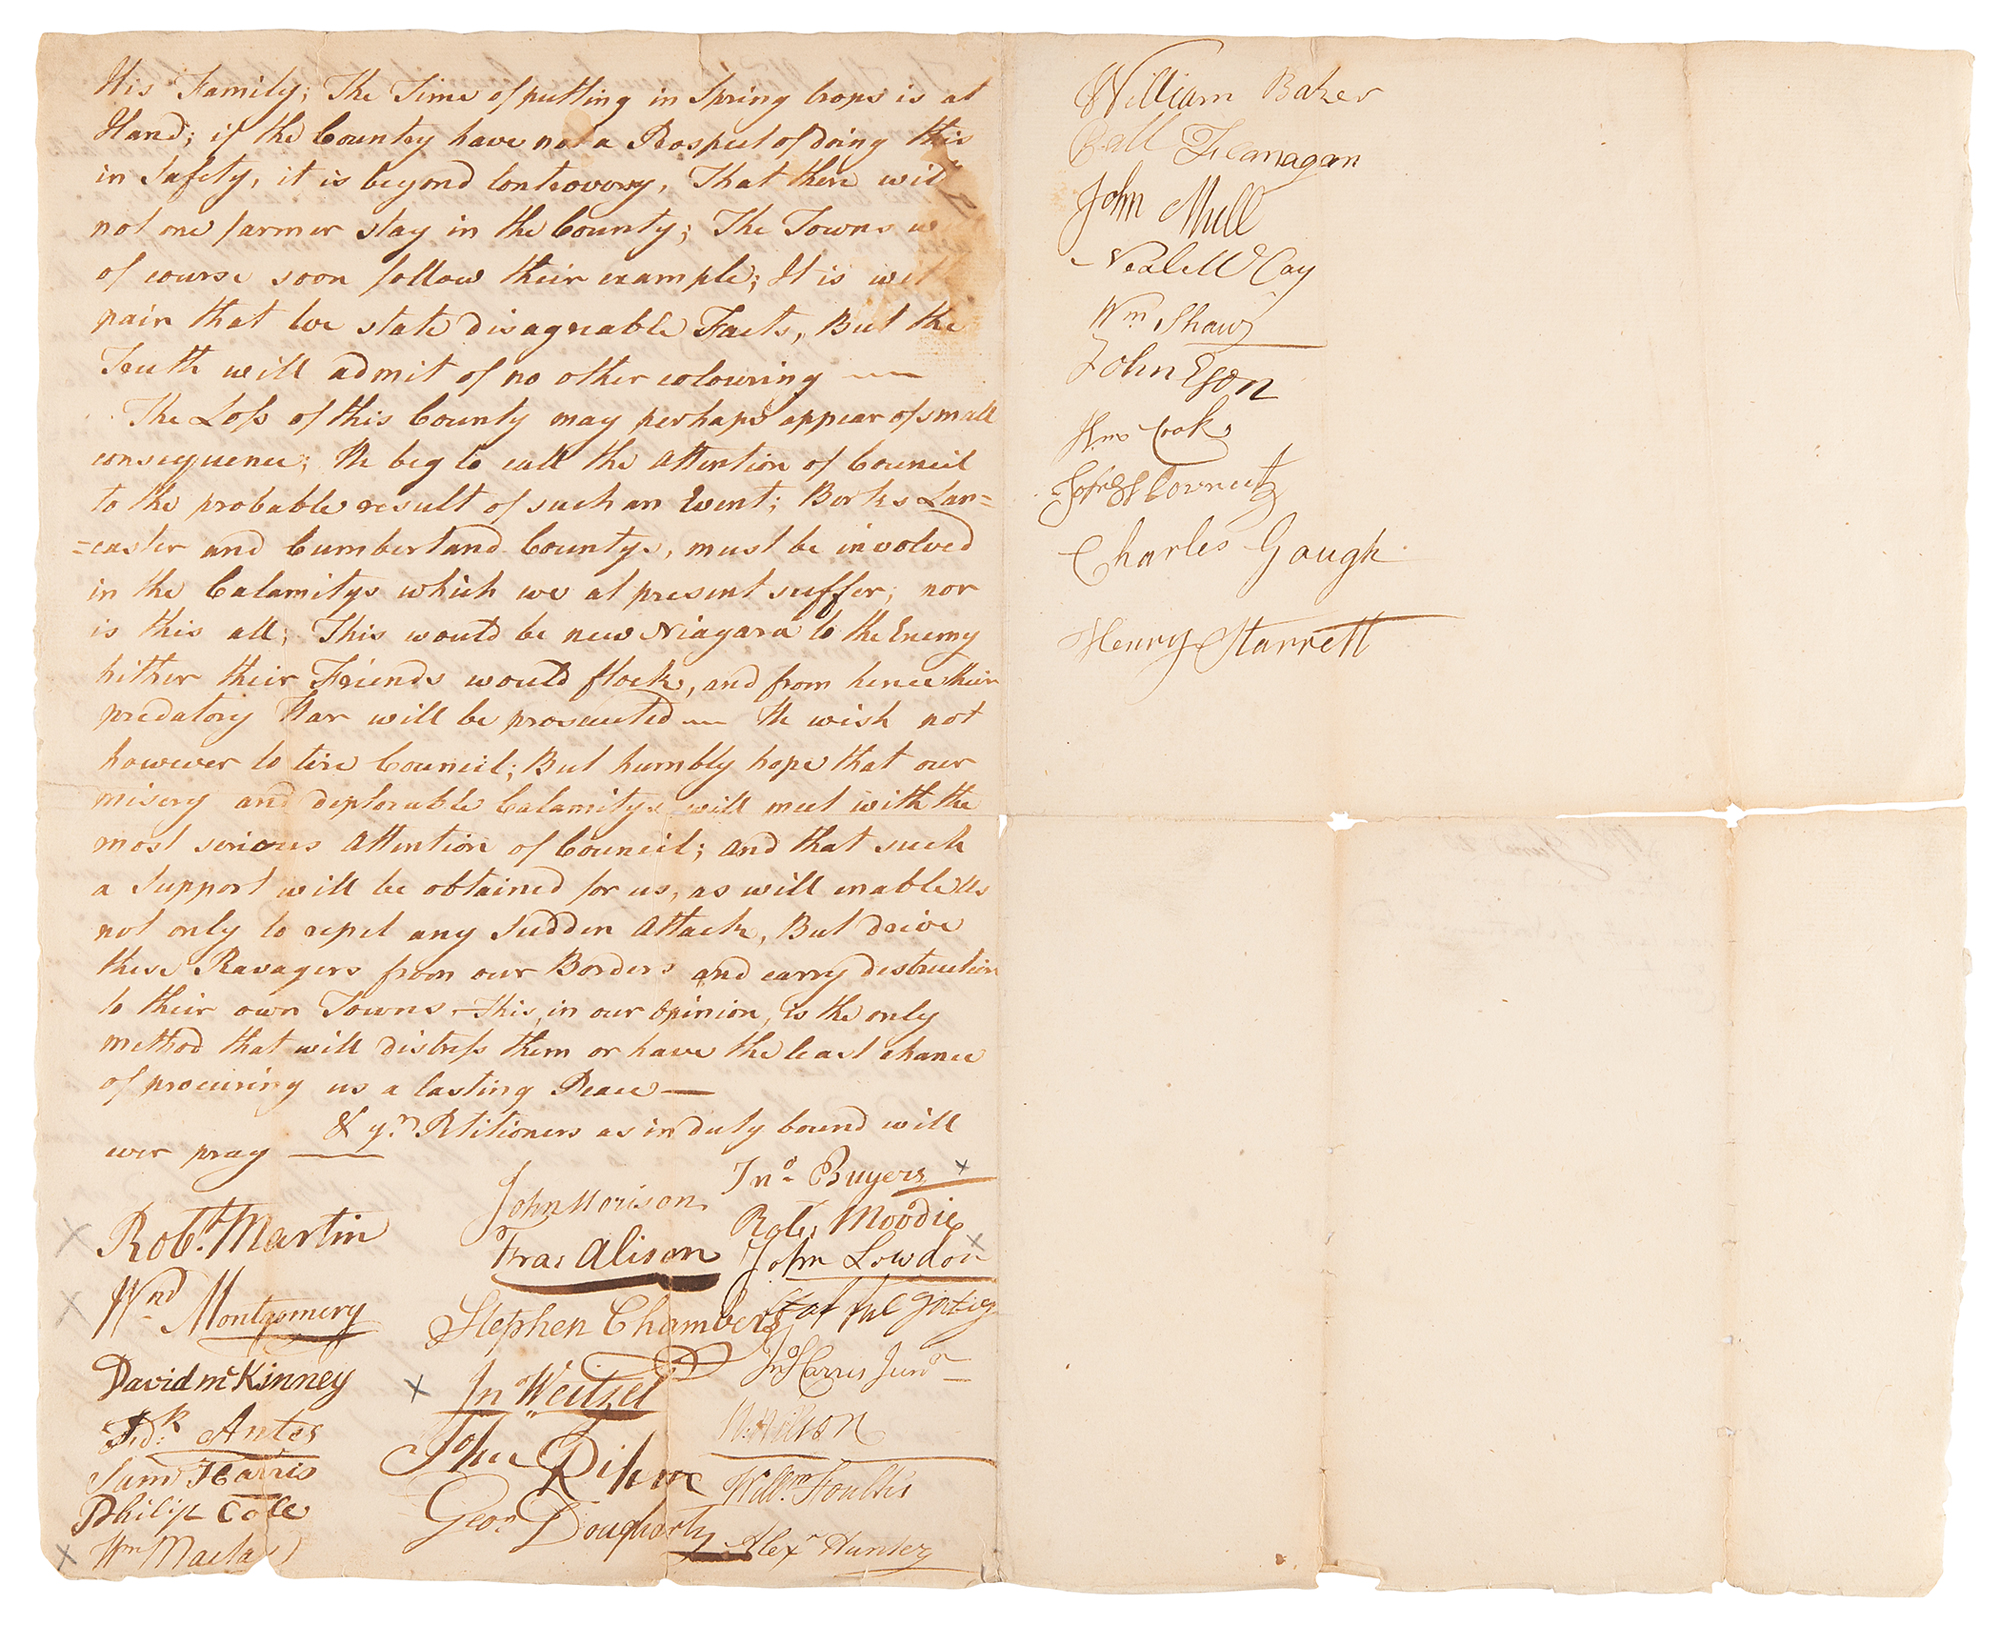 His Family; The Time of putting in Spring Crops is at
Hand; if the Country have not a Prospect of doing this
in Safety, it is beyond Controversy, That there will
not one farmer stay in the County; The Towns w
of course soon follow their example; It is wit
pain that we state disagreable Facts, But the
Truth will admit of no other colouring —
The Loss of this County may perhaps appear of small
consequence; We beg to call the Attention of Council
to the probable result of such an Event; Berks Lan=
=caster and Cumberland Countys, must be involved
in the Calamitys which we at present suffer; nor
is this all; This would be new Niagara to the Enemy
hither their Friends would flock, and from hence their
predatory War will be prosecuted — We wish not
however to tire Council; But humbly hope that our
misery and deplorable Calamitys will meet with the
most serious Attention of Council; and that such
a Support will be obtained for us, as will enable us
not only to repel any Sudden Attack, But drive
these Ravagers from our Borders and carry destruction
to their own Towns — This, in our Opinion, is the only
method that will distress them or have the least chance
of procuring us a lasting Peace —
& yr. Petitioners as in duty bound will
ever pray —
Robt. Martin
Wm Montgomery
David McKinney
Fredk Antes
Saml Harris
Philip Cole
Wm Macla
John Morison
Fras Alison
Stephen Chambers
Jno Weitzel
Geor Dougharty
Jno. Buyers
Robt. Moodie
John Lowdon
Jno Harris Junor
W. Wilson
Willm
Alexr Hunter
William Baker
Flanagan
John Mull
Neal McCay
Wm Shaw
John
Wm Cook
Charles Gough
Henry Starrett